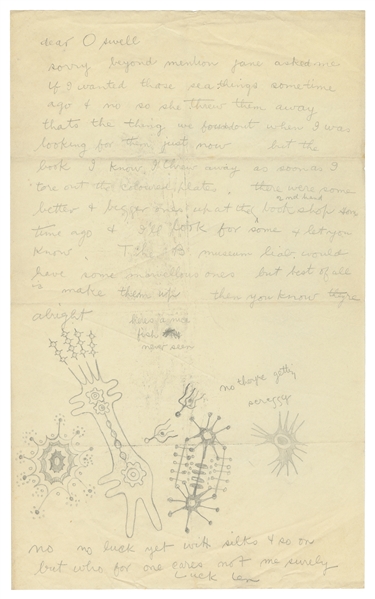 Dear O swell
sorry beyond mention jane asked me
if I wanted those sea things sometime
ago & no so she threw them away
thats the thing we foundout when I was
looking for them just now but the
book I know I threw away so soon as I
tore out the coloured plates. there were some
better & bigger ones up at the 2nd hand bookshop some
time ago & I'll look for some & let you
know. The B museum liar would
have some marvellous ones but best of all
is make them up then you know theyre
alright
heres a nice
fish
never seen
no thorpe getting
no no luck yet with silks & so on
but who for one cares not me surely
Luck Len